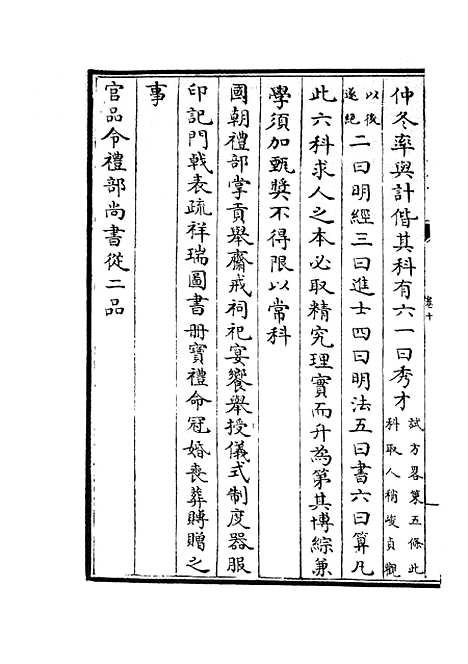 仲冬率與計偕其科有六一曰秀才試方畧策五條此科取人稍峻貞觀
以後遂絶二曰明經三曰進士四曰明法五曰書六曰算凡
此六科求人之本必取精究理實而升為第其博綜兼
學須加甄奬不得限以常科
國朝禮部掌貢舉齋戒祠祀宴饗舉授儀式制度器服
印記門戟表疏祥瑞圖書册寶禮命冠婚喪葬賻贈之
事
官品令禮部尚書從二品
卷十